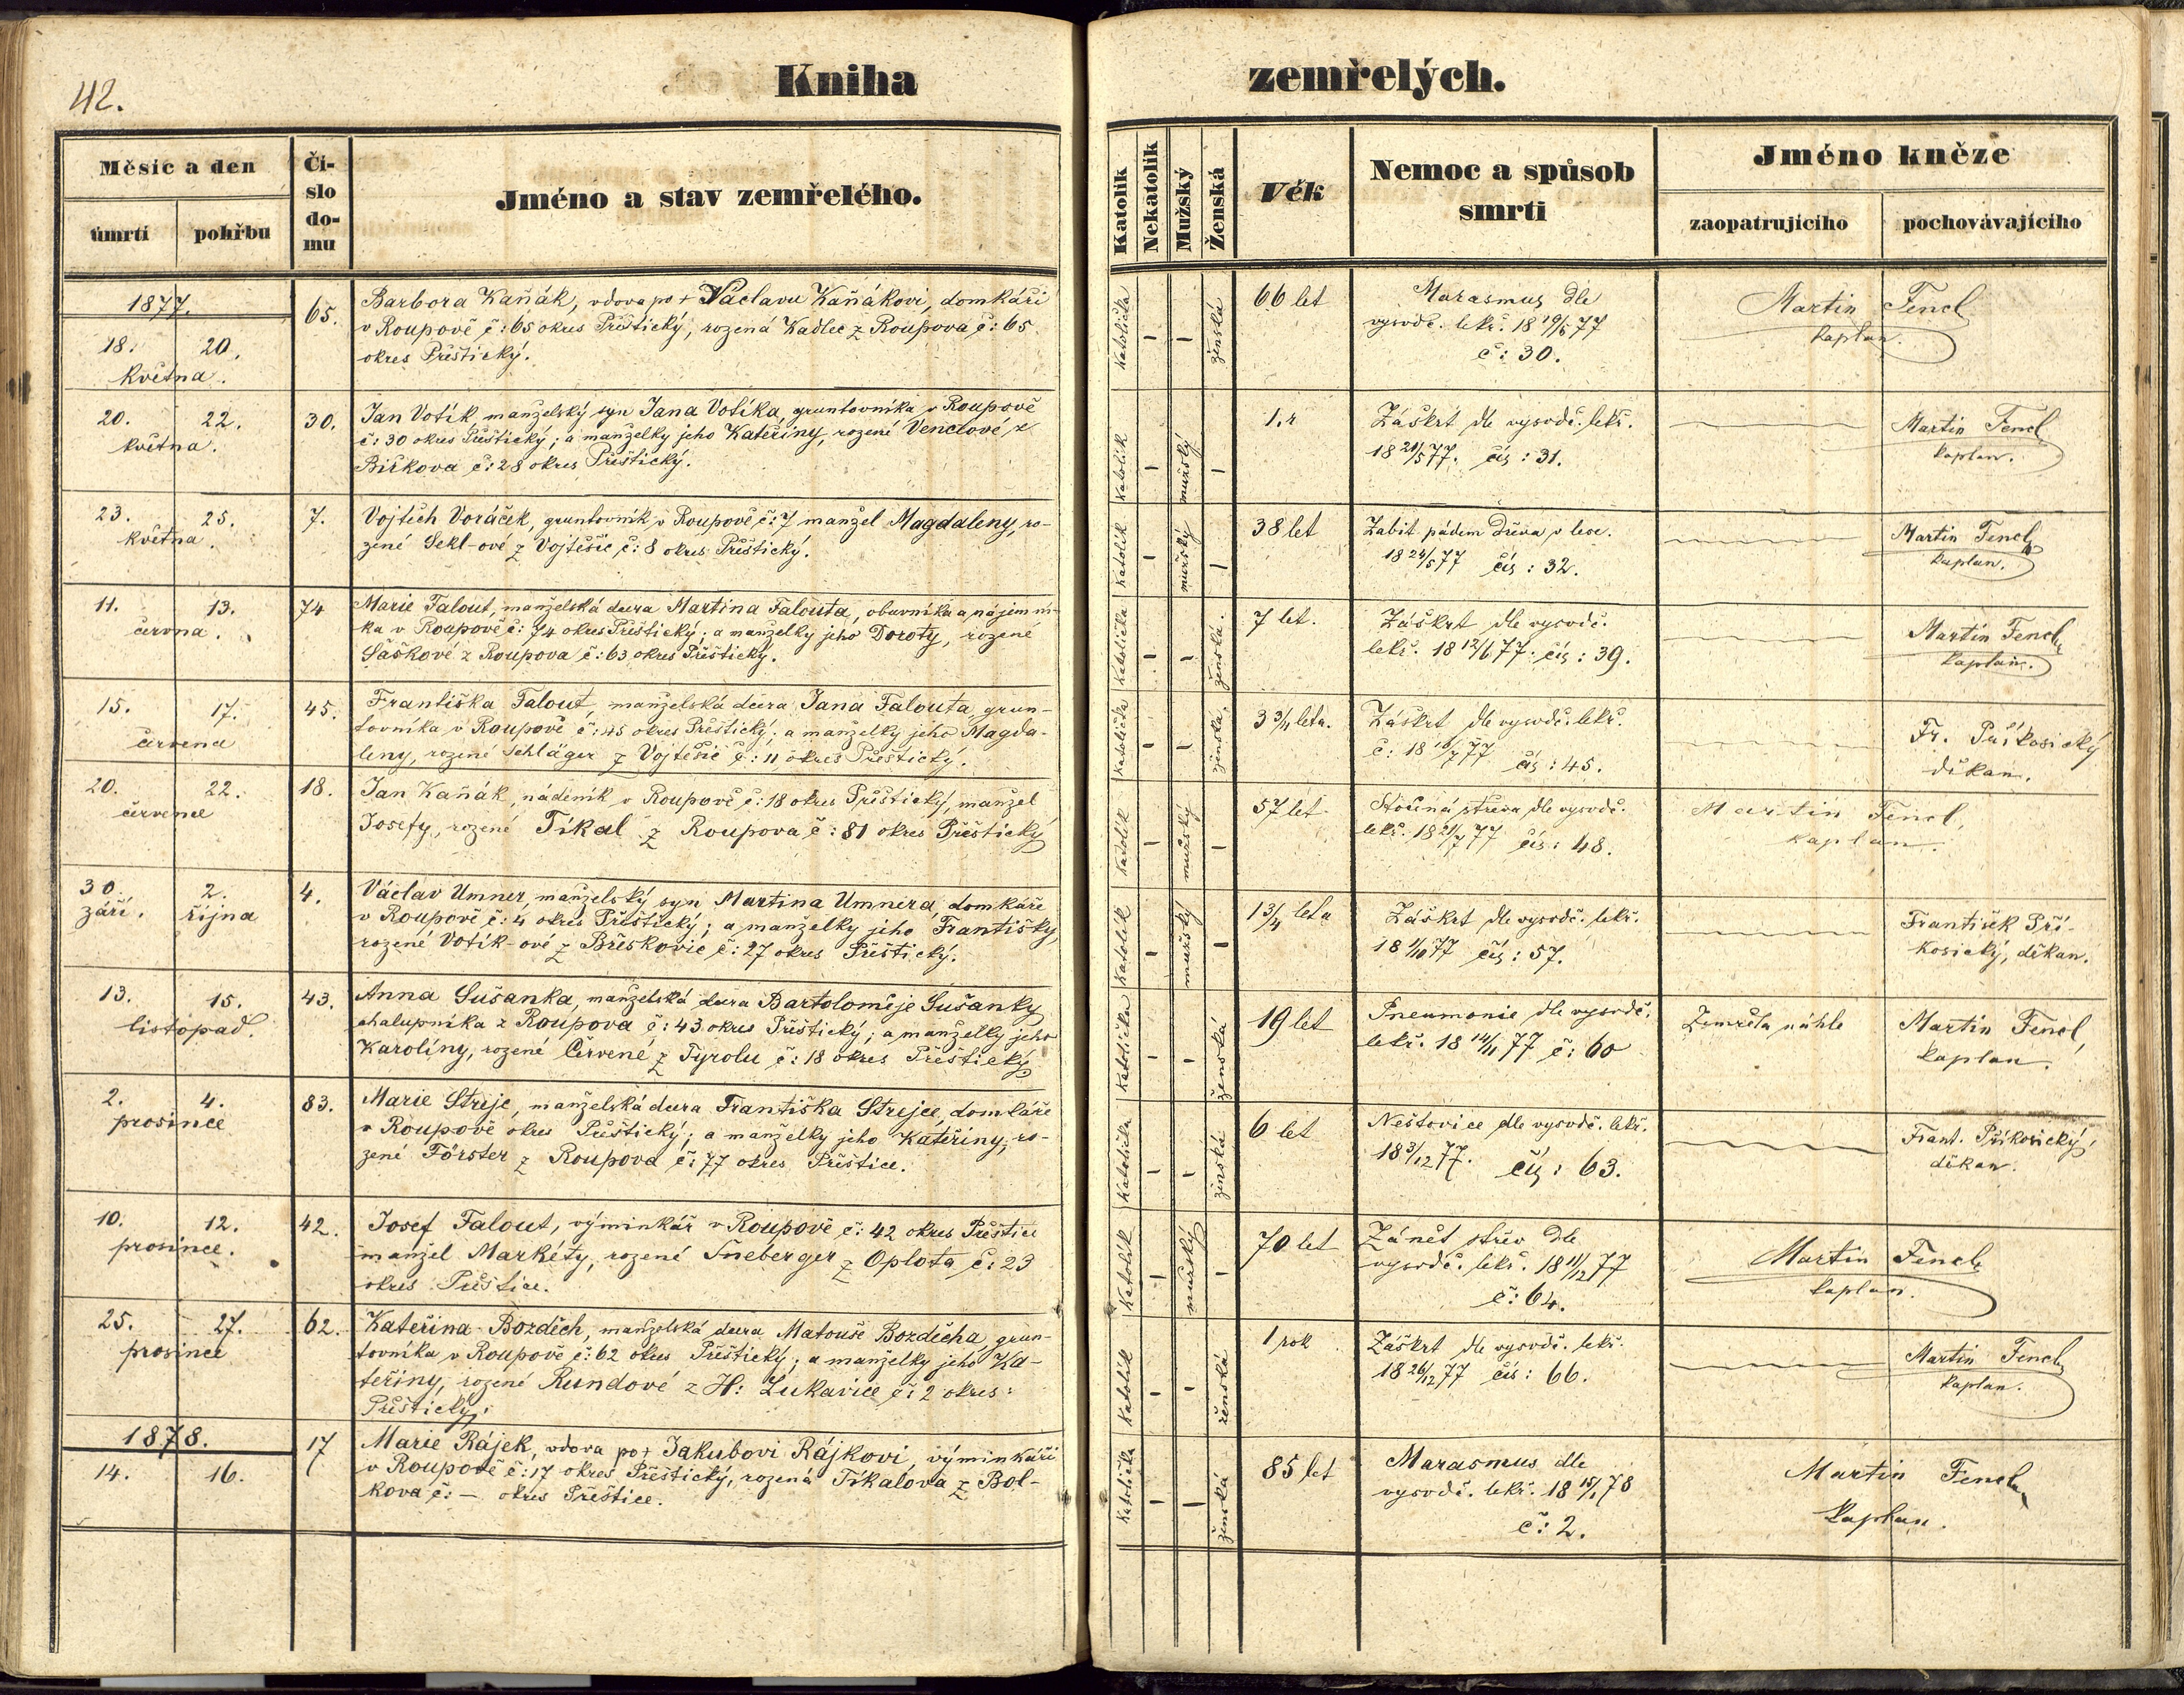 42.
Kniha
zemřelých.
Měsíc a den
úmrtí
pohřbu
Čí-
slo
do-
mu
Jméno a stav zemřelého.
Katolík
Nekatolík
Mužský
Ženská
Věk
Nemoc a spůsob
smrti
Jméno kněze
zaopatrujícího
pochovávajícího
1877.
18. 20.
května.
65.
Barbora Kaňák, vdova po + Václavu Kaňákovi, domkáři
v Roupově č: 65 okres Přeštický, rozená Kadlec z Roupova č: 65
okres Přeštický.
Katolička
–
–
ženská
66 let
Marasmus dle
vysvdč. lekř. 18 19/5 77
č: 30.
Martin Fencl
kaplan.
20. 22.
května.
30.
Jan Votík, manželský syn Jana Votíka, gruntovníka v Roupově
č: 30 okres Přeštický; a manželky jeho Kateřiny, rozené Venclové, z
Birkova č: 28 okres Přeštický.
Katolík
–
mužský
–
1. r
Záškrt dle vysvdč. lekř.
18 21/5 77. čís: 31.
Martin Fencl
kaplan.
23. 25.
května.
7.
Vojtěch Voráček, gruntovník v Roupově č: 7 manžel Magdaleny, ro-
zené Sekl-ové z Vojtěšic č: 8 okres Přeštický.
Katolík
–
mužský
–
38 let
Zabit pádem dřeva v lese.
18 24/5 77 čís: 32.
Martin Fencl
kaplan.
11. 13.
června.
74
Marie Falout, manželská dcera Martina Falouta, obuvníka a nájemní-
ka v Roupově č: 74 okres Přeštický; a manželky jeho Doroty, rozené
Saškové z Roupova č: 63 okres Přeštický.
Katolička
–
–
ženská.
7 let.
Záškrt dle vysvdč.
lekř. 18 12/6 77. čís: 39.
Martin Fencl
kaplan.
15. 17.
července
45.
Františka Falout, manželská dcera Jana Falouta, grun-
tovníka v Roupově č: 45 okres Přeštický; a manželky jeho Magda-
leny, rozené Schläger z Vojtěšic č: 11 okres Přeštický.
Katolička
–
–
ženská.
3 3/4 leta.
Záškrt dle vysvdč. lekř.
č: 18 16/7 77 čís: 45.
Fr. Příkosický
děkan.
20. 22.
července
18.
Jan Kaňák, nádeník v Roupově č: 18 okres Přeštický, manžel
Josefy, rozené Tíkal z Roupova č: 81 okres Přeštický
Katolík
–
mužský
–
57 let
Stočená střeva dle vysvdč.
lekř. 18 21/7 77 čís: 48.
Martin Fencl,
kaplan.
30. 2.
září. října
4.
Václav Umner, manželský syn Martina Umnera, domkáře
v Roupově č: 4 okres Přeštický; a manželky jeho Františky,
rozené Votík-ové z Břeskovic č: 27 okres Přeštický.
Katolík
–
mužský
–
1 3/4 leta
Záškrt dle vysvdč. lekř.
18 1/10 77 čís: 57.
František Pří-
kosický, děkan.
13. 15.
listopad.
43.
Anna Sušanka, manželská dcera Bartoloměje Sušanky
chalupníka z Roupova č: 43 okres Přeštický; a manželky jeho
Karolíny, rozené Červené z Tyrolu č: 18 okres Přeštický
Katolička
–
–
ženská
19 let
Pneumonie dle vysvdč.
lekř. 18 14/11 77 č: 60
Zemřela náhle
Martin Fencl,
kaplan.
2. 4.
prosince
83.
Marie Strejc, manželská dcera Františka Strejce, domkáře
v Roupově okres Přeštický; a manželky jeho Kateřiny, ro-
zené Förster z Roupova č: 77 okres Přeštice.
Katolička
–
–
ženská
6 let
Neštovice dle vysvdč. lekř.
18 3/12 77. čís: 63.
Frant. Příkosický,
děkan.
10. 12.
prosince.
42.
Josef Falout, výminkář v Roupově č: 42 okres Přeštice
manžel Markéty, rozené Šneberger z Oplota č: 23
okres Přeštice.
Katolík
–
mužský
–
70 let
Zánět střev dle
vysvdč. lekř. 18 11/12 77
č: 64.
Martin Fencl
kaplan.
25. 27.
prosince
62.
Kateřina Bozděch, manželská dcera Matouše Bozděcha, grun-
tovníka v Roupově č: 62 okres Přeštický; a manželky jeho Ka-
teřiny, rozené Rundové z H: Lukavice č: 2 okres:
Přeštický.
Katolík
–
–
ženská
1 rok
Záškrt dle vysvdč. lekř.
18 26/12 77 čís: 66.
Martin Fencl
kaplan.
1878.
14. 16.
17
Marie Rájek, vdova po + Jakubovi Rájkovi, výminkáři
v Roupově č: 17 okres Přeštický, rozená Tíkalová z Bol-
kova č: — okres Přeštice.
Katolička
–
–
ženská
85 let
Marasmus dle
vysvdč. lekř. 18 15/1 78
č: 2.
Martin Fencl
kaplan.